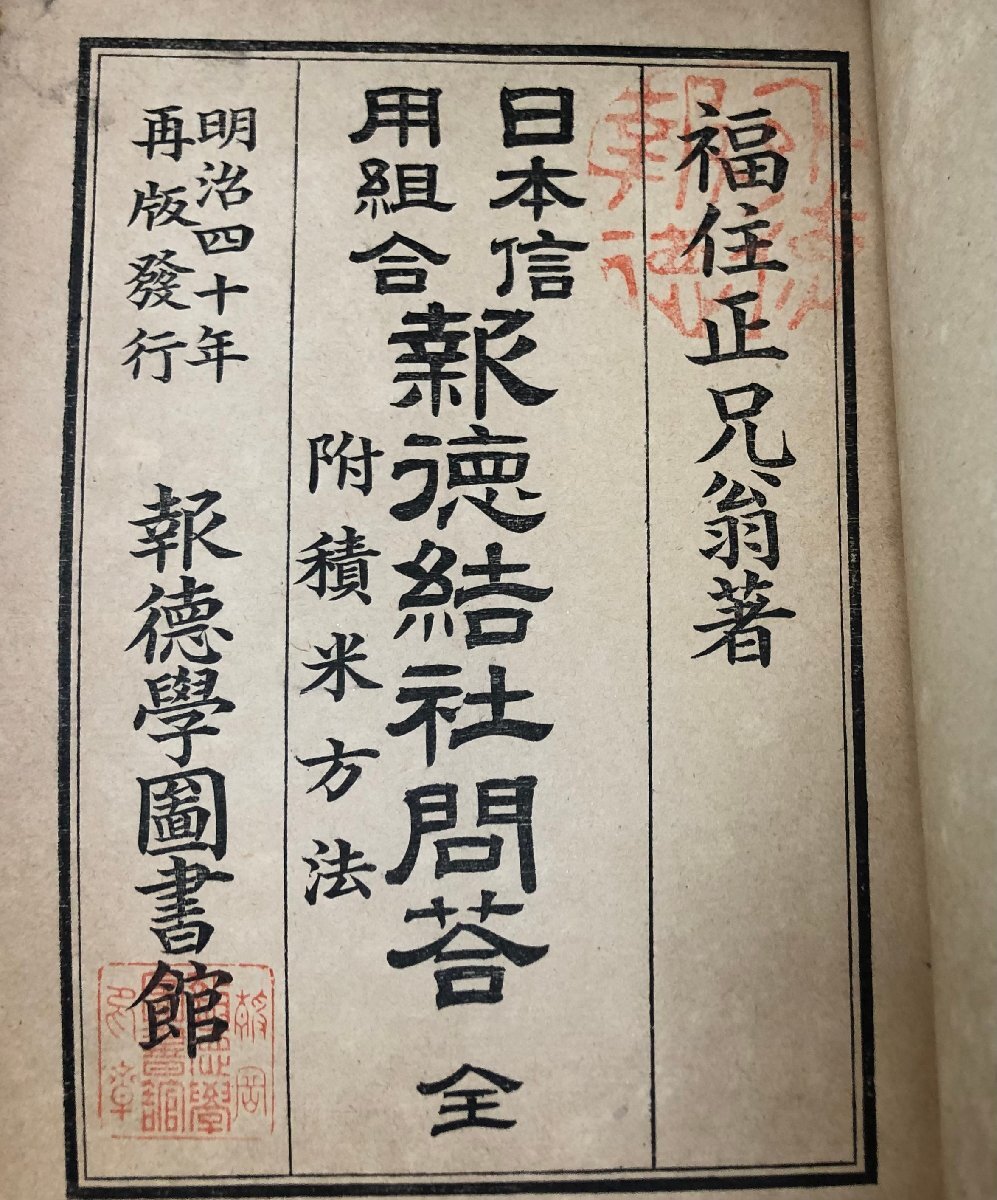 福住正兄翁著
日本信
用組合
報徳結社問荅 全
附積米方法
明治四十年
再版發行
報德學圖書館